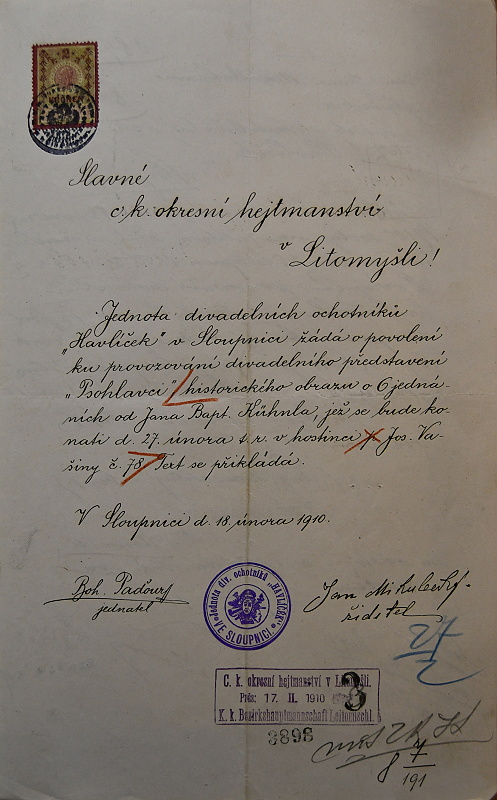 Slavné
c. k. okresní hejtmanství
v
Litomyšli!
Jednota divadelních ochotníků
„Havlíček" v Sloupnici žádá o povolení
ku provozování divadelního představení
„Psohlavci" historického obrazu o 6 jedná-
ních od Jana Bapt. Kühnla, jež se bude ko-
nati d. 27. února t. r. v hostinci p. Jos. Va-
šiny č. 78 Text se přikládá.
V Sloupnici d. 18. února 1910.
Boh.
jednatel
Jednota div. ochotníků „HAVLÍČEK"
VE SLOUPNICI.
Jan
ředitel
27
2
C. k. okresní hejtmanství v Litomyšli.
Präs: 17. II. 1910 3
K. k. Bezirkshauptmannschaft Leitomischl.
3898
8 7
191